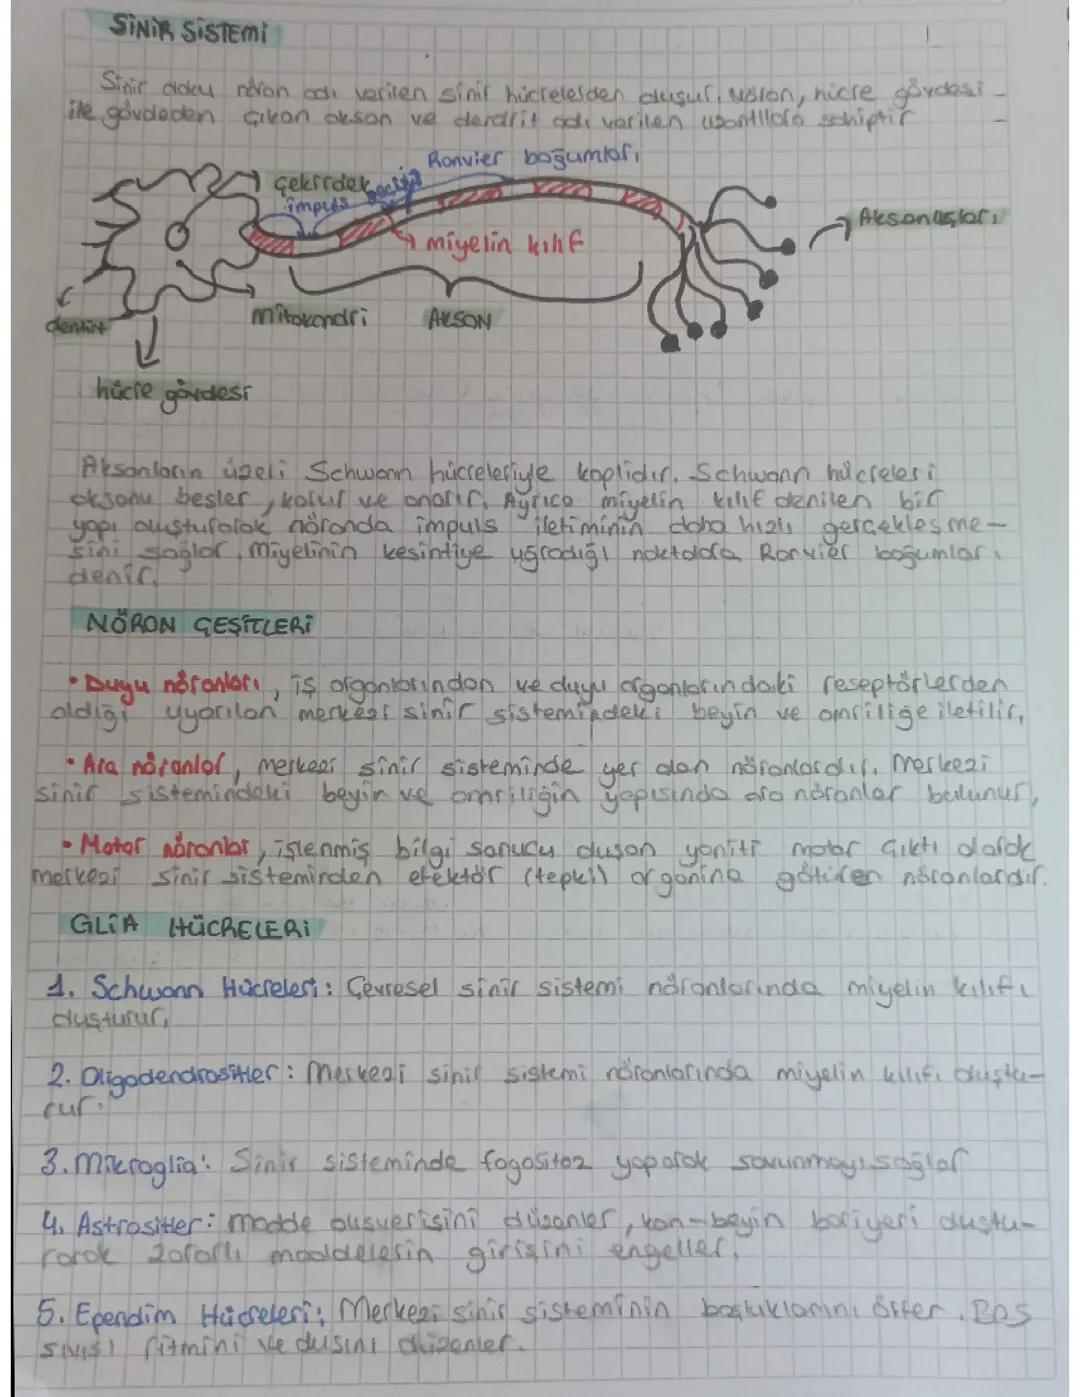 SİNİR SİSTEMİ
Sinir doku nöron adı verilen sinir hücrelerden oluşur. Nöron, hücre gövdesi
ile gövdeden çıkan akson ve dendrit adı verilen uzantılara sahiptir
Ranvier boğumları
çekirdek
impuls geçişi
Akson uçları
miyelin kılıf
dentrit
mitokondri
AKSON
hücre gövdesi
Aksonların üzeri Schwann hücreleriyle kaplıdır. Schwann hücreleri
aksonu besler, korur ve onarır. Ayrıca miyelin kılıf denilen bir
yapı oluşturarak nöronda impuls iletiminin daha hızlı gerçekleşme-
sini sağlar. Miyelinin kesintiye uğradığı noktalara Ranvier boğumları
denir.
NÖRON ÇEŞİTLERİ
• Duyu nöronları, iş organlarından ve duyu organlarındaki reseptörlerden
aldığı uyarıları merkezi sinir sistemindeki beyin ve omriliğe iletilir.
• Ara nöronlar, merkezi sinir sisteminde yer alan nöronlardır. Merkezi
sinir sistemindeki beyin ve omriliğin yapısında ara nöronlar bulunur.
• Motor nöronlar, işlenmiş bilgi sonucu oluşan yanıtı motor çıktı olarak
merkezi sinir sisteminden efektör (tepki) organına götüren nöronlardır.
GLİA HÜCRELERİ
1. Schwann Hücreleri: Çevresel sinir sistemi nöronlarında miyelin kılıfı
oluşturur.
2. Oligodendrositler: Merkezi sinir sistemi nöronlarında miyelin kılıfı oluştu-
rur.
3. Mikroglia: Sinir sisteminde fagositoz yaparak savunmayı sağlar
4. Astrositler: madde alışverişini düzenler, kan-beyin bariyeri oluştu-
rarak zararlı maddelerin girişini engeller.
5. Ependim Hücreleri: Merkezi sinir sisteminin boşluklarını örter. BOS
sıvısı ritmini ve dusını düzenler.